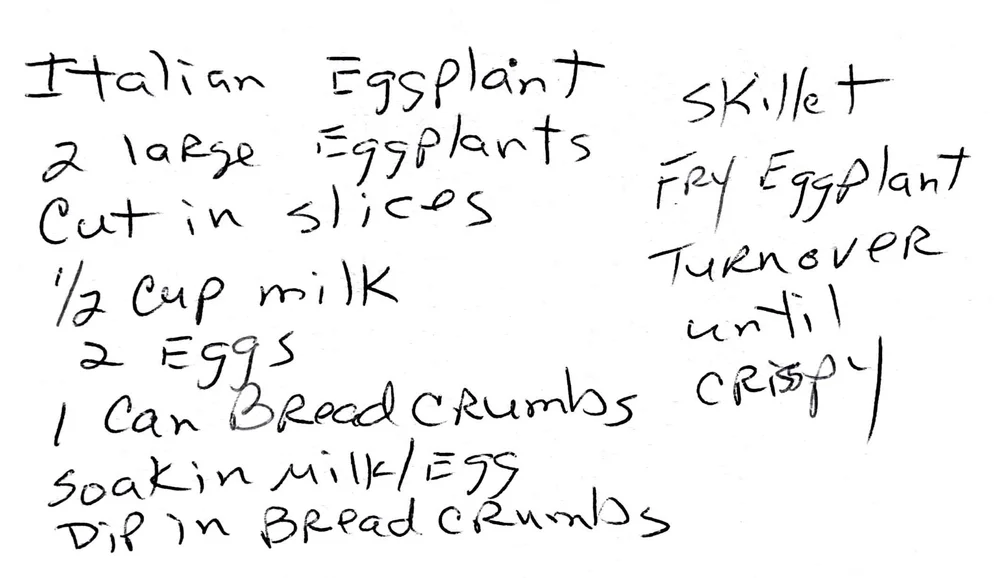 Italian Eggplant
2 large Eggplants
Cut in slices
1/2 cup milk
2 Eggs
1 Can Bread Crumbs
Soak in Milk/Egg
Dip in Bread Crumbs
Skillet
Fry Eggplant
Turnover
until
crispy